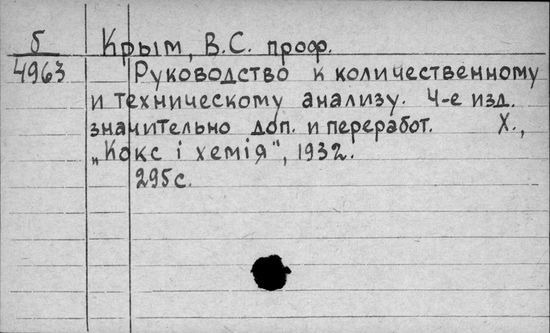 б
4963
Крым, В.С. проф.
Руководство к количественному
и техническому анализу. 4-е изд.
значительно доп. и переработ. Х.,
„Кокс і хемія", 1932.
295с.